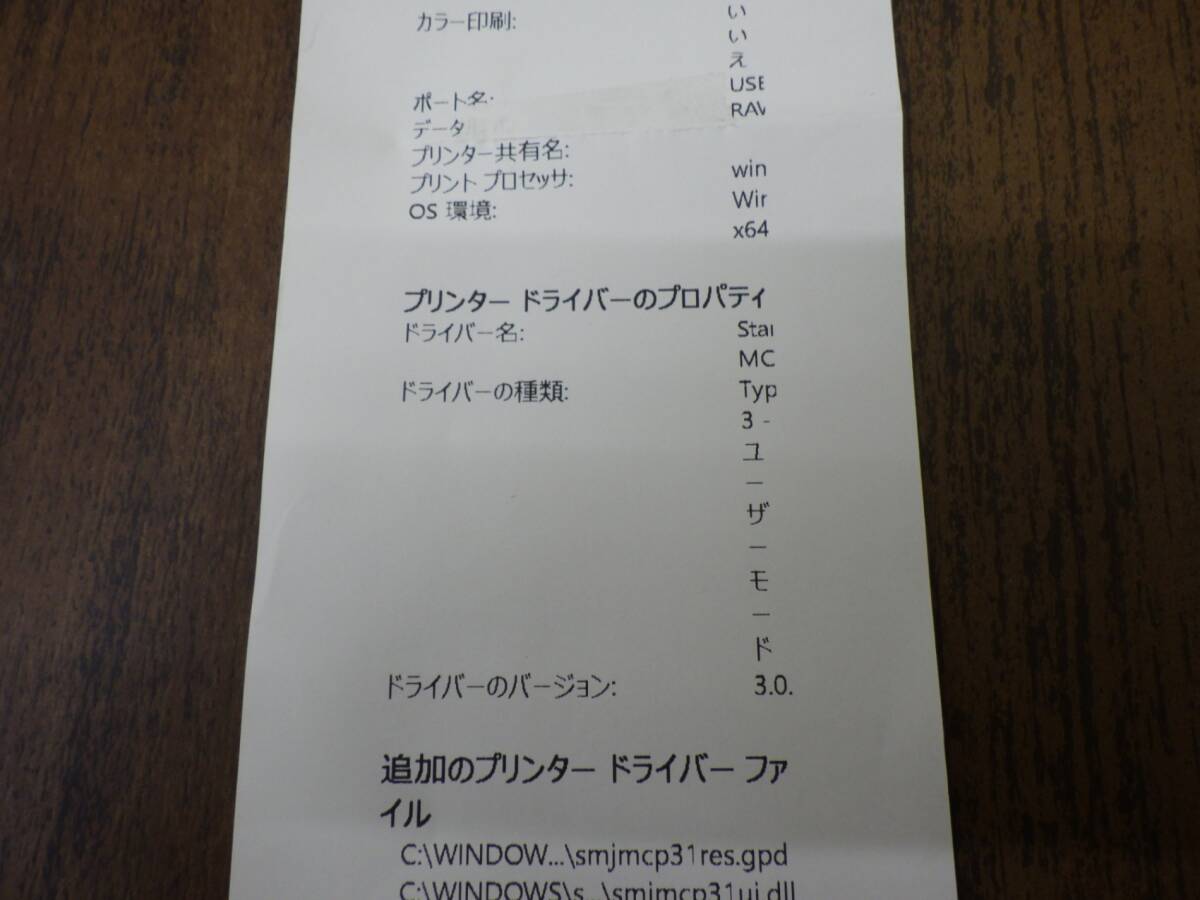 カラー印刷: い
い
え
ポート名: USE
データ RAV
プリンター共有名:
プリント プロセッサ: win
OS 環境: Wir
x64
プリンター ドライバーのプロパティ
ドライバー名: Star
MC
ドライバーの種類: Typ
3 -
ユ
ー
ザ
ー
モ
ー
ド
ドライバーのバージョン: 3.0.
追加のプリンター ドライバー ファ
イル
C:\WINDOW...\smjmcp31res.gpd
C:\WINDOWS\s...\smjmcp31ui.dll